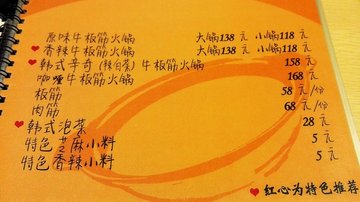 原味牛板筋火锅 大锅138元 小锅118元
❤香辣牛板筋火锅 大锅138元 小锅118元
❤韩式辛奇(辣白菜)牛板筋火锅 158元
咖喱牛板筋火锅 168元
板筋 58元/份
肉筋 68元/份
❤韩式泡菜 28元
特色芝麻小料 5元
特色香辣小料 5元
❤红心为特色推荐